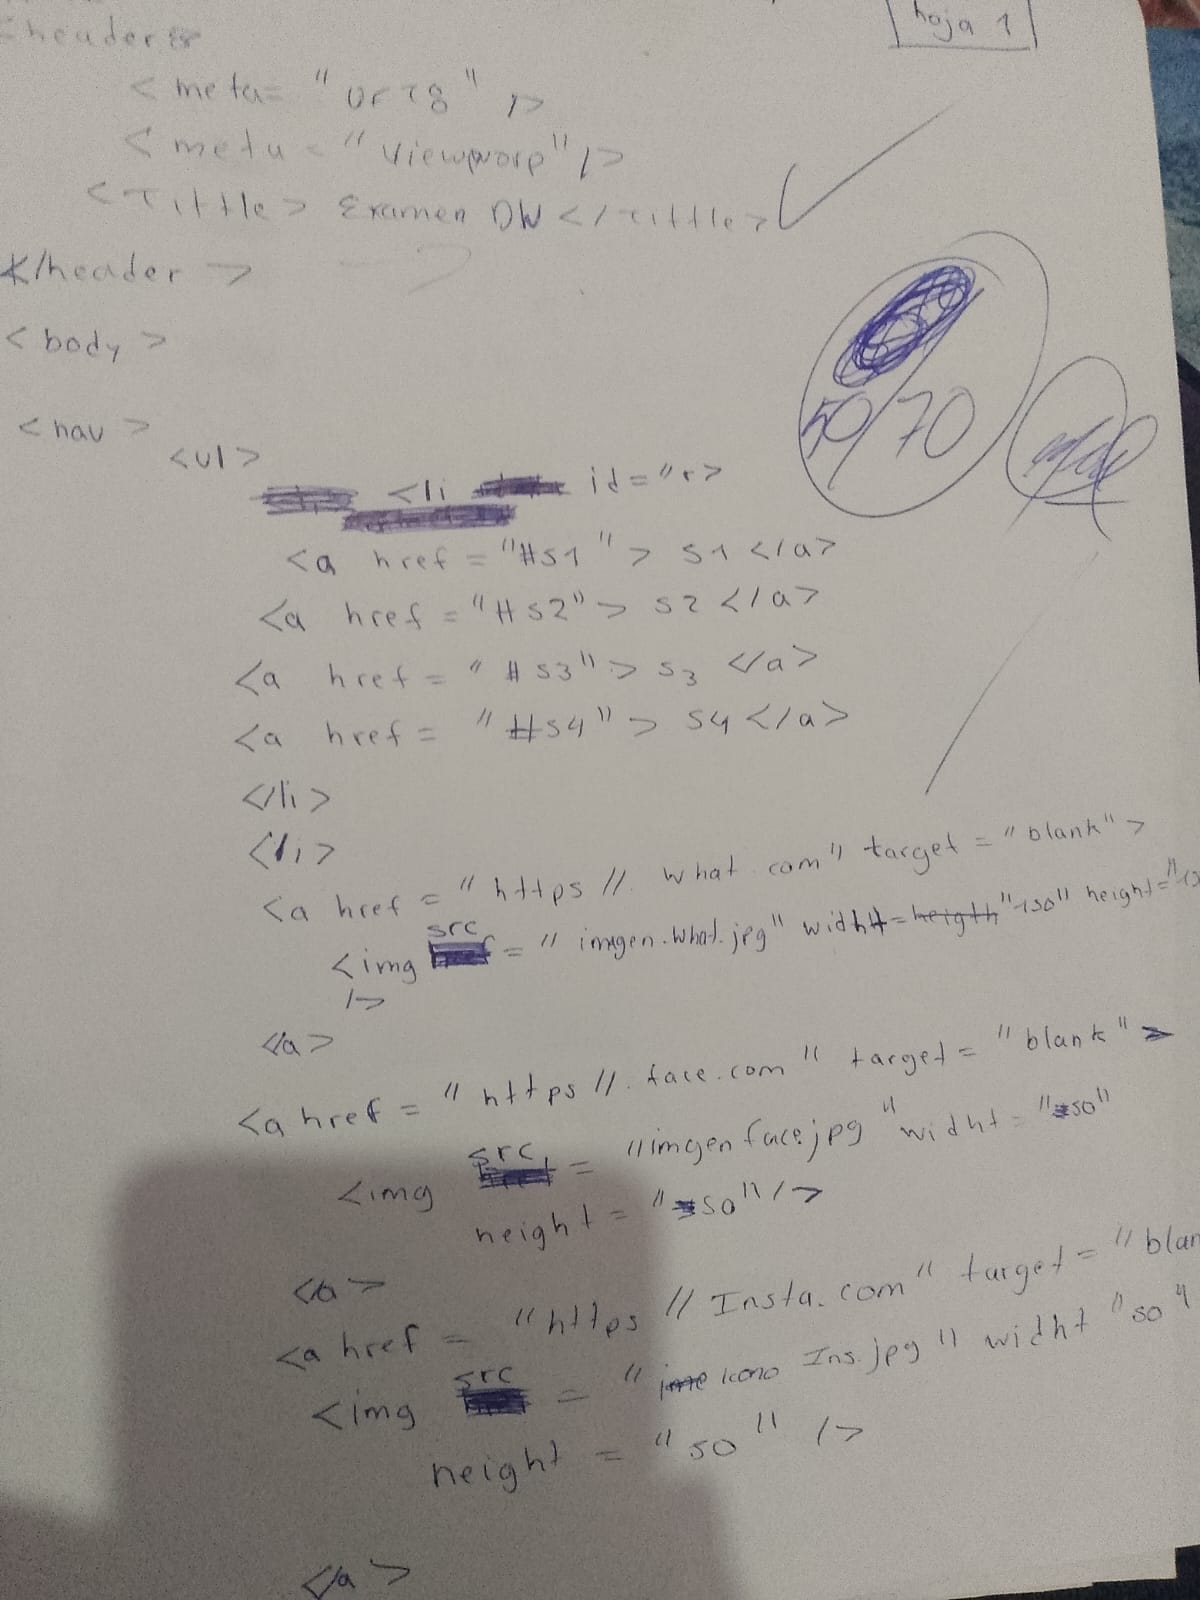 hoja 1
<header>
<meta= "UTF8" />
<meta = "viewporp" />
<Tittle> Examen DW </Tittle>
</header>
<body>
50/70
<nav>
<ul>
<li id="r>
<a href = "#s1"> s1 </a>
<a href = "#s2"> s2 </a>
<a href = "#s3"> s3 </a>
<a href = "#s4"> s4 </a>
</li>
<li>
<a href = "https //. what.com" target = "blank">
<img src = "imagen.What.jpg" widht = "150" height =
/>
</a>
<a href = "https //. face.com" target = "blank">
<img src = "imgen face.jpg" widht = "50"
height = "50" />
</a>
<a href = "https // Insta.com" target = "blan
<img src = "icono Ins.jpg" widht "50"
height = "50" />
</a>